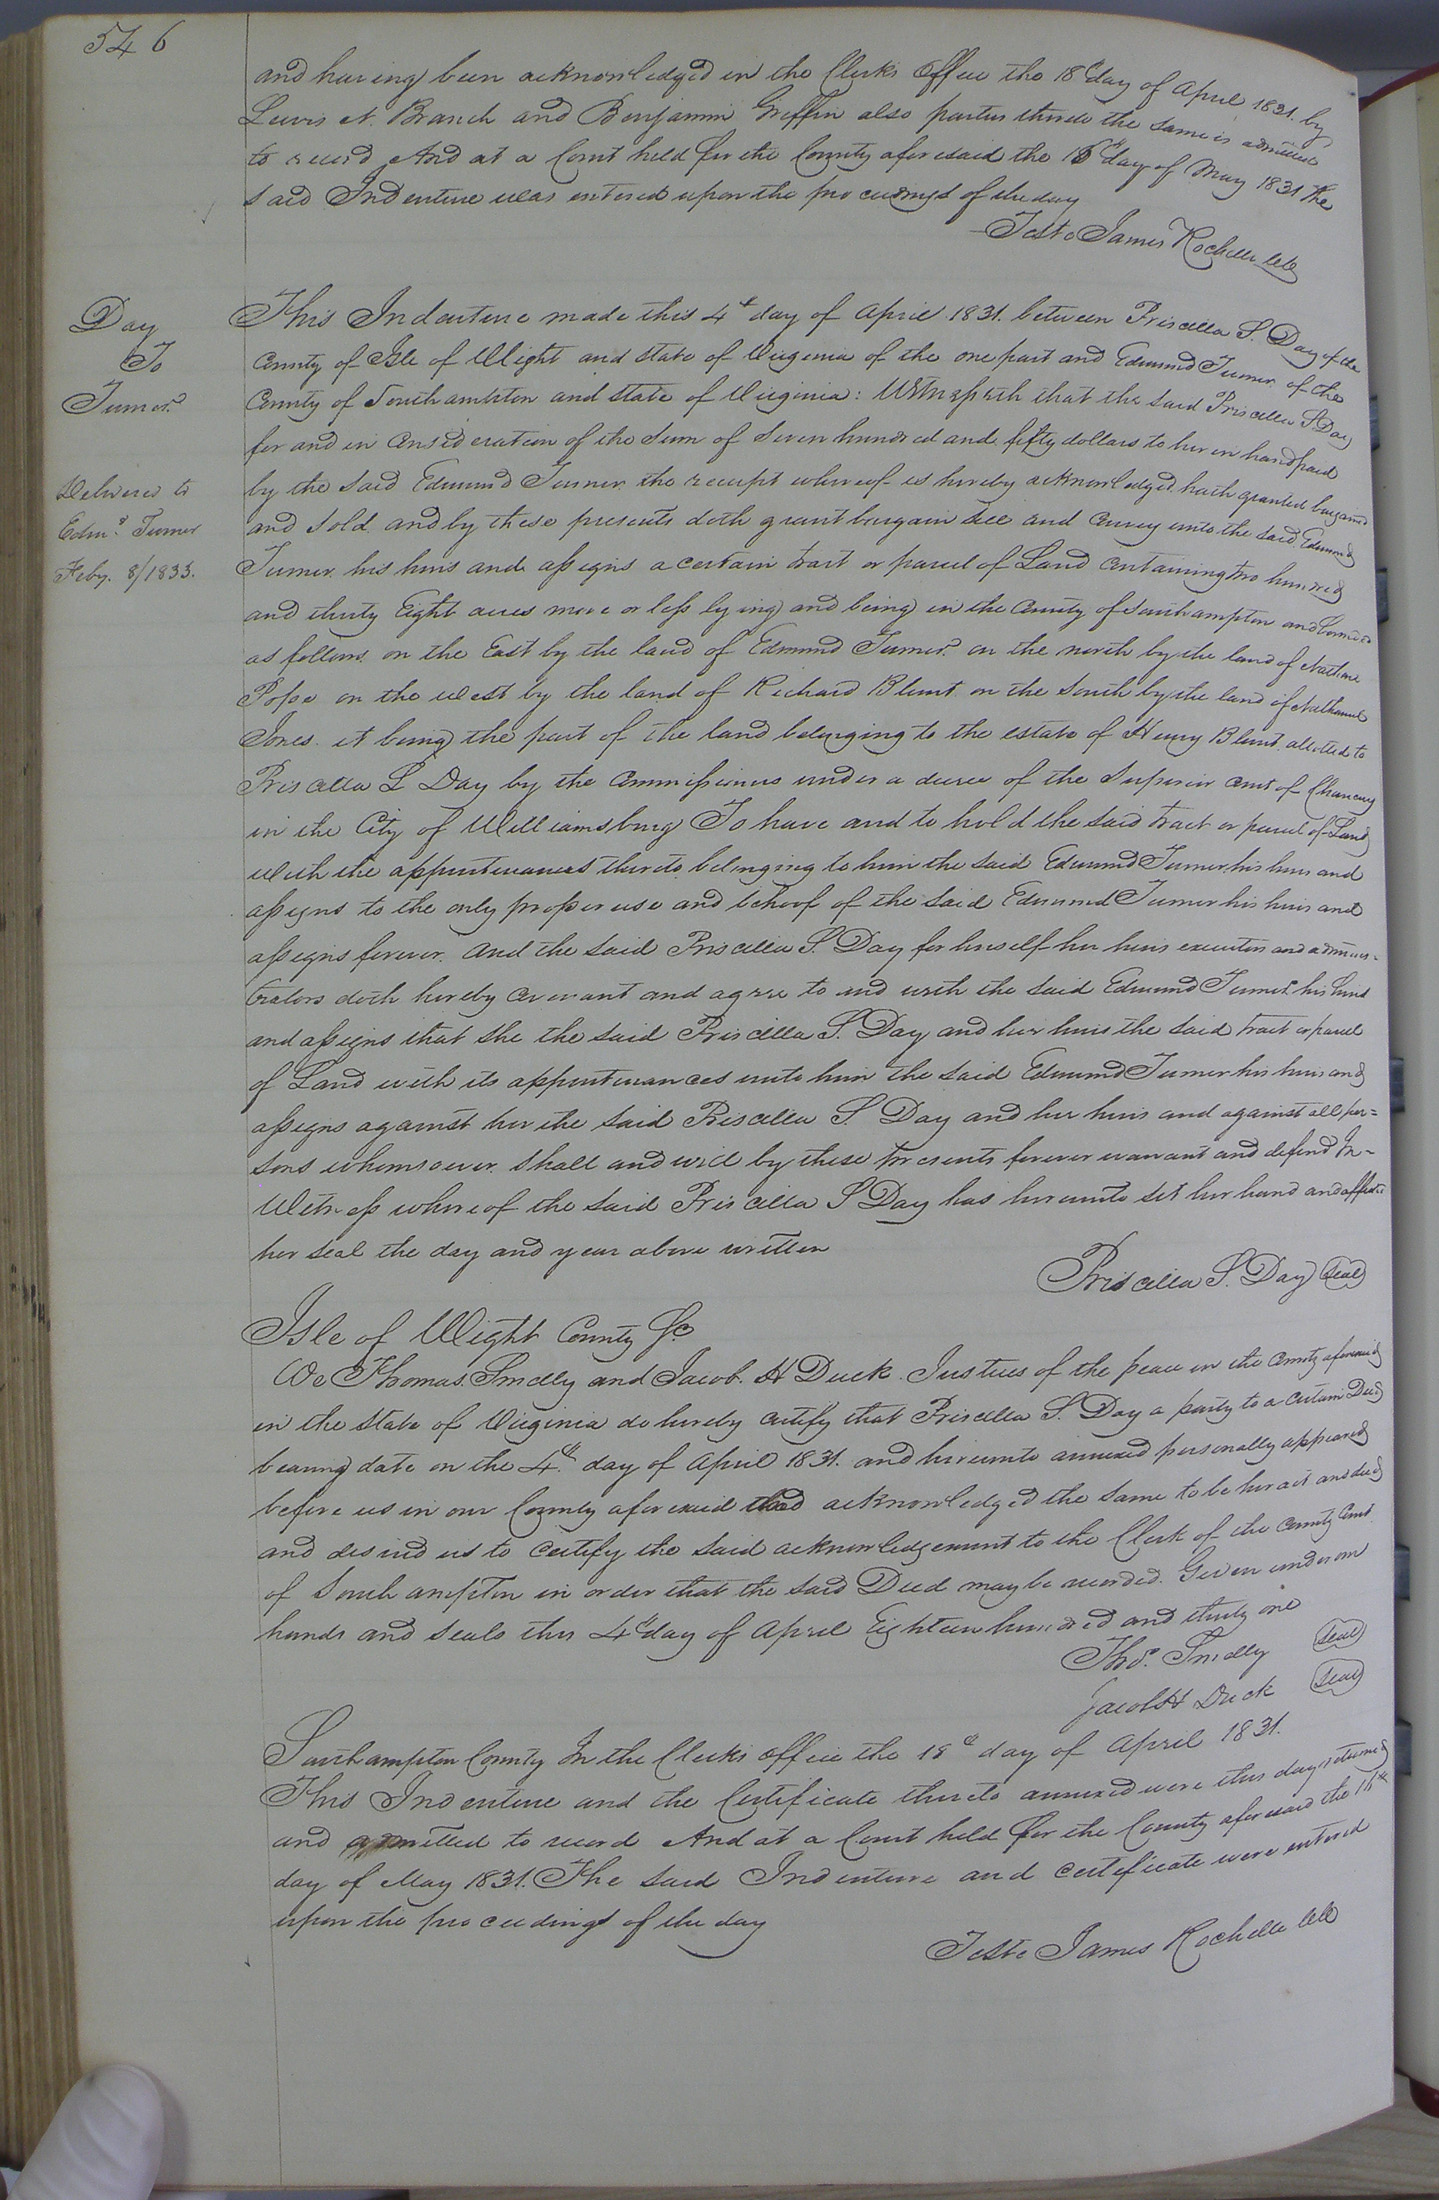 546
and having been acknowledged in the Clerks Office the 18th day of April 1831. by
Lewis N. Branch and Benjamin Griffin also parties thereto the same is admitted
to record And at a Court held for the County aforesaid the 16th day of May 1831 The
said Indenture was entered upon the proceedings of the day
Teste James Rochelle
Day
To
Turner
Delivered to
Edmd. Turner
Feby. 8/1833.
This Indenture made this 4th day of April 1831. between Priscilla S. Day of the
County of Isle of Wight and State of Virginia of the one part and Edmund Turner of the
County of Southampton and State of Virginia: Witnesseth that the said Priscilla S. Day
for and in Consideration of the Sum of Seven hundred and fifty dollars to her in hand paid
by the said Edmund Turner the receipt whereof is hereby acknowledged, hath granted bargained
and Sold and by these presents doth grant bargain Sell and Convey unto the said Edmund
Turner his heirs and assigns a certain tract or parcel of Land Containing two hundred
and thirty Eight acres more or less lying and being in the County of Southampton and bounded
as follows on the East by the land of Edmund Turner on the north by the land of Nathan
Pope on the west by the land of Richard Blunt on the South by the land of Nathaniel
Jones it being the part of the land belonging to the estate of Henry Blunt allotted to
Priscilla S Day by the Commissioners under a decree of the Superior Court of Chancery
in the City of Williamsburg To have and to hold the said tract or parcel of Land
with the appurtenances thereto belonging to him the said Edmund Turner his heirs and
assigns to the only proper use and behoof of the said Edmund Turner his heirs and
assigns forever. And the said Priscilla S. Day for herself her heirs executors and adminis-
trators doth hereby Covenant and agree to and with the said Edmund Turner his heirs
and assigns that she the said Priscilla S. Day and her heirs the said tract or parcel
of Land with its appurtenances unto him the said Edmund Turner his heirs and
assigns against her the said Priscilla S. Day and her heirs and against all per=
sons whomsoever shall and will by these presents forever warrant and defend In
Witness whereof the said Priscilla S Day has hereunto set her hand and affixed
her seal the day and year above written
Priscilla S. Day Seal
Isle of Wight County Sc
We Thomas Smelly and Jacob. H Duck Justices of the peace in the County aforesaid
in the State of Virginia do hereby certify that Priscilla S. Day a party to a certain Deed
bearing date on the 4th day of April 1831. and hereunto annexed personally appeared
before us in our County aforesaid and acknowledged the same to be her act and deed
and desired us to certify the said acknowledgement to the Clerk of the County Court
of Southampton in order that the said Deed may be recorded. Given under our
hands and seals this 4th day of April Eighteen hundred and thirty one
Thos. Smelly Seal
Jacob H Duck Seal
Southampton County In the Clerks office the 18th day of April 1831.
This Indenture and the Certificate thereto annexed were this day returned
and admitted to record And at a Court held for the County aforesaid the 16th
day of May 1831. The said Indenture and certificate were entered
upon the proceedings of the day
Teste James Rochelle